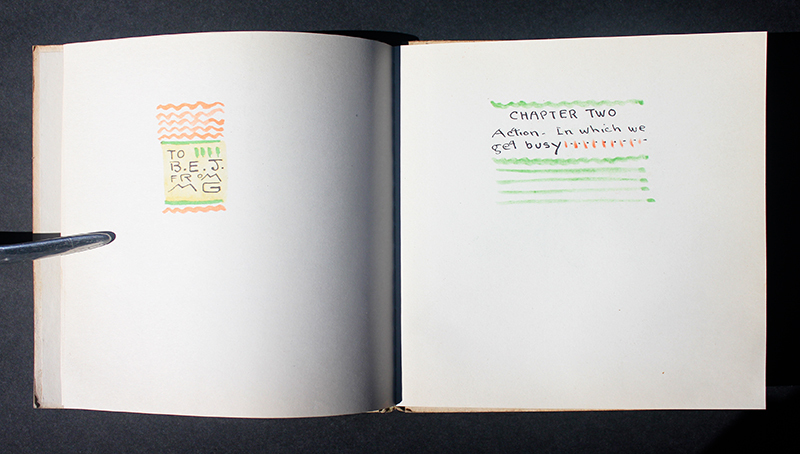 TO
B.E.J.
FROM
MG
CHAPTER TWO
Action. In which we
get busy